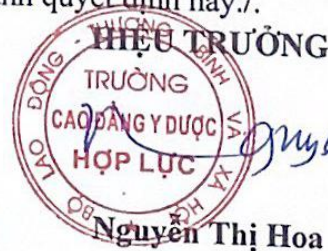 quyết định này./.
HIỆU TRƯỞNG
BỘ LAO ĐỘNG - THƯƠNG BINH VÀ XÃ HỘI
TRƯỜNG
CAO ĐẲNG Y DƯỢC
HỢP LỰC
Nguyễn Thị Hoa